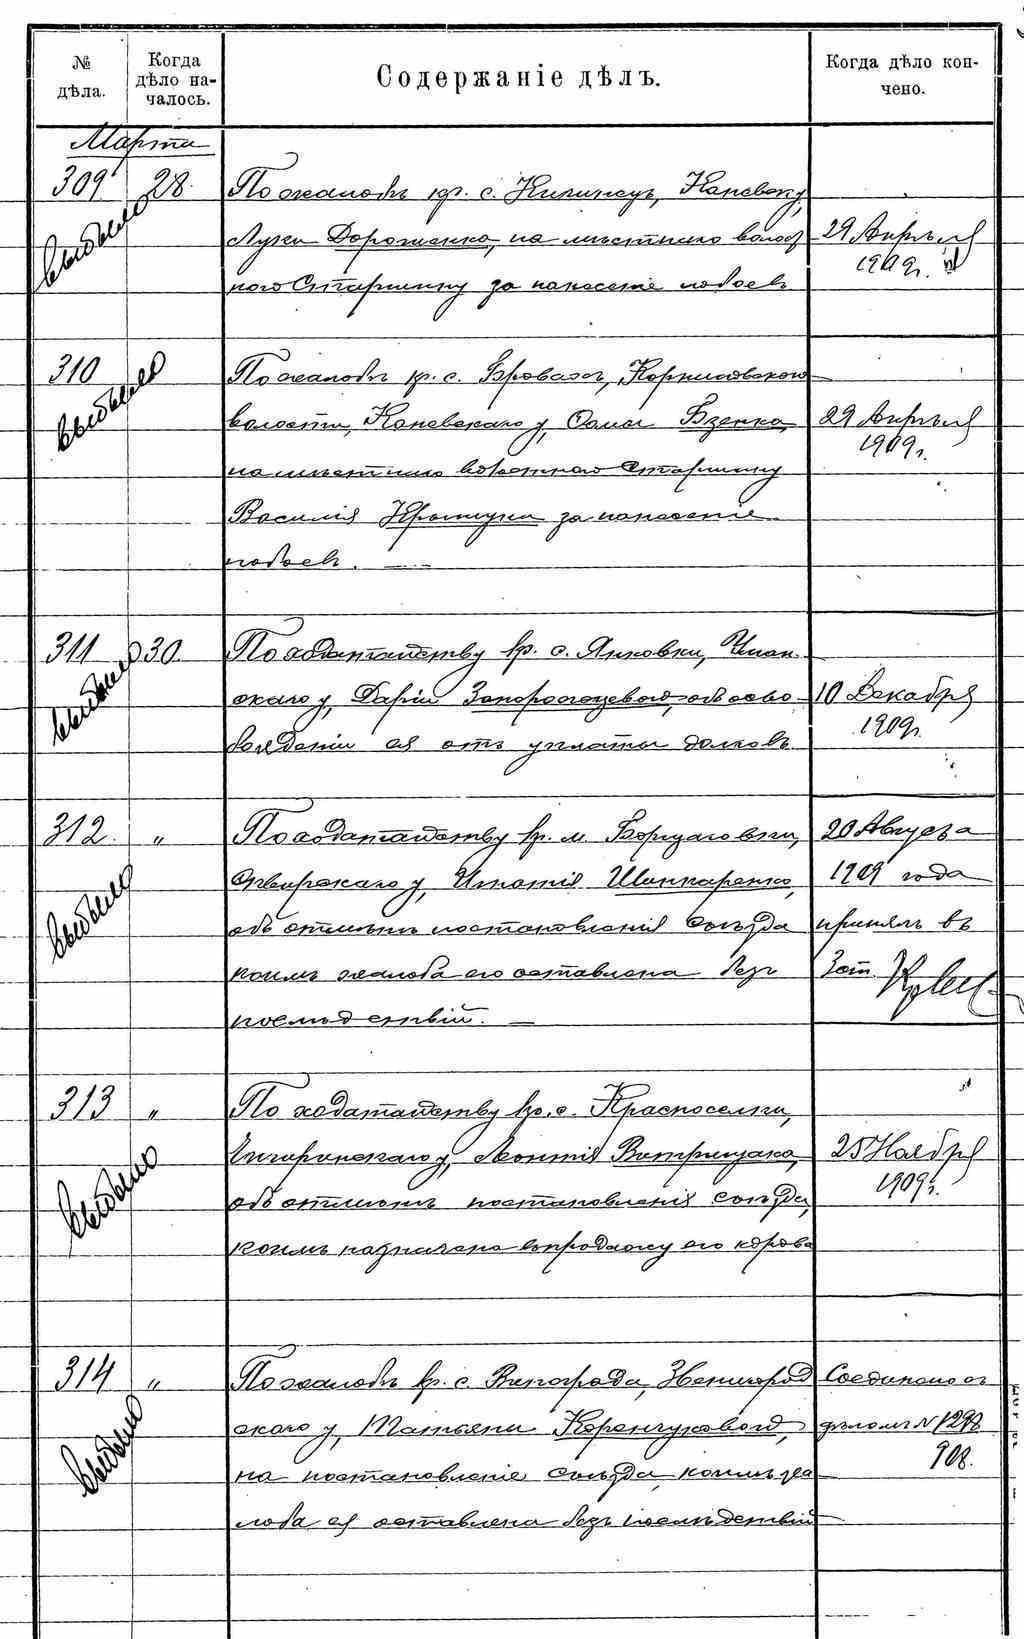 № дѣла.
Когда дѣло на-чалось.
Содержаніе дѣлъ.
Когда дѣло кон-чено.
Марта
309 28. По жалобѣ кр. с. Каневск. у,
Луки Дорошенко, на мѣстнаго волост
ного Старшину за нанесеніе побоевъ
29 Апрѣля
1909г.
выбыло
310 По жалобѣ кр. с. Бровахъ, Корниловской
волости, Каневскаго у, Ѳомы Бзенко,
на мѣстнаго волостного Старшину
Василія за нанесеніе
побоевъ.
29 Апрѣля
1909г.
выбыло
311 30. По ходатайству кр. с. Янковки, Уман-
скаго у, Даріи Запорожцевой, объ осво-
божденіи ея отъ уплаты долговъ
10 Декабря
1909г.
выбыло
312. „ По ходатайству кр. м. Борщаговки,
Сквирскаго у, Игнатія Шинкаренко,
объ отмѣнѣ постановленія съѣзда
коимъ жалоба его оставлена безъ
послѣдствій.
20 Августа
1909 года
принялъ въ
выбыло
313 „ По ходатайству кр. с. Красноселки,
Чигиринскаго у, Леонтія
объ отмѣнѣ постановленія съѣзда,
коимъ назначена въ продажу его корова
25 Ноября
1909г.
выбыло
314 „ По жалобѣ кр. с. Винограда, Звенигород
скаго у, Татьяны Коренчуковой,
на постановленіе съѣзда, коимъ жа
лоба ея оставлена безъ послѣдствій
Соединено съ
дѣломъ № 1298
908.
выбыло